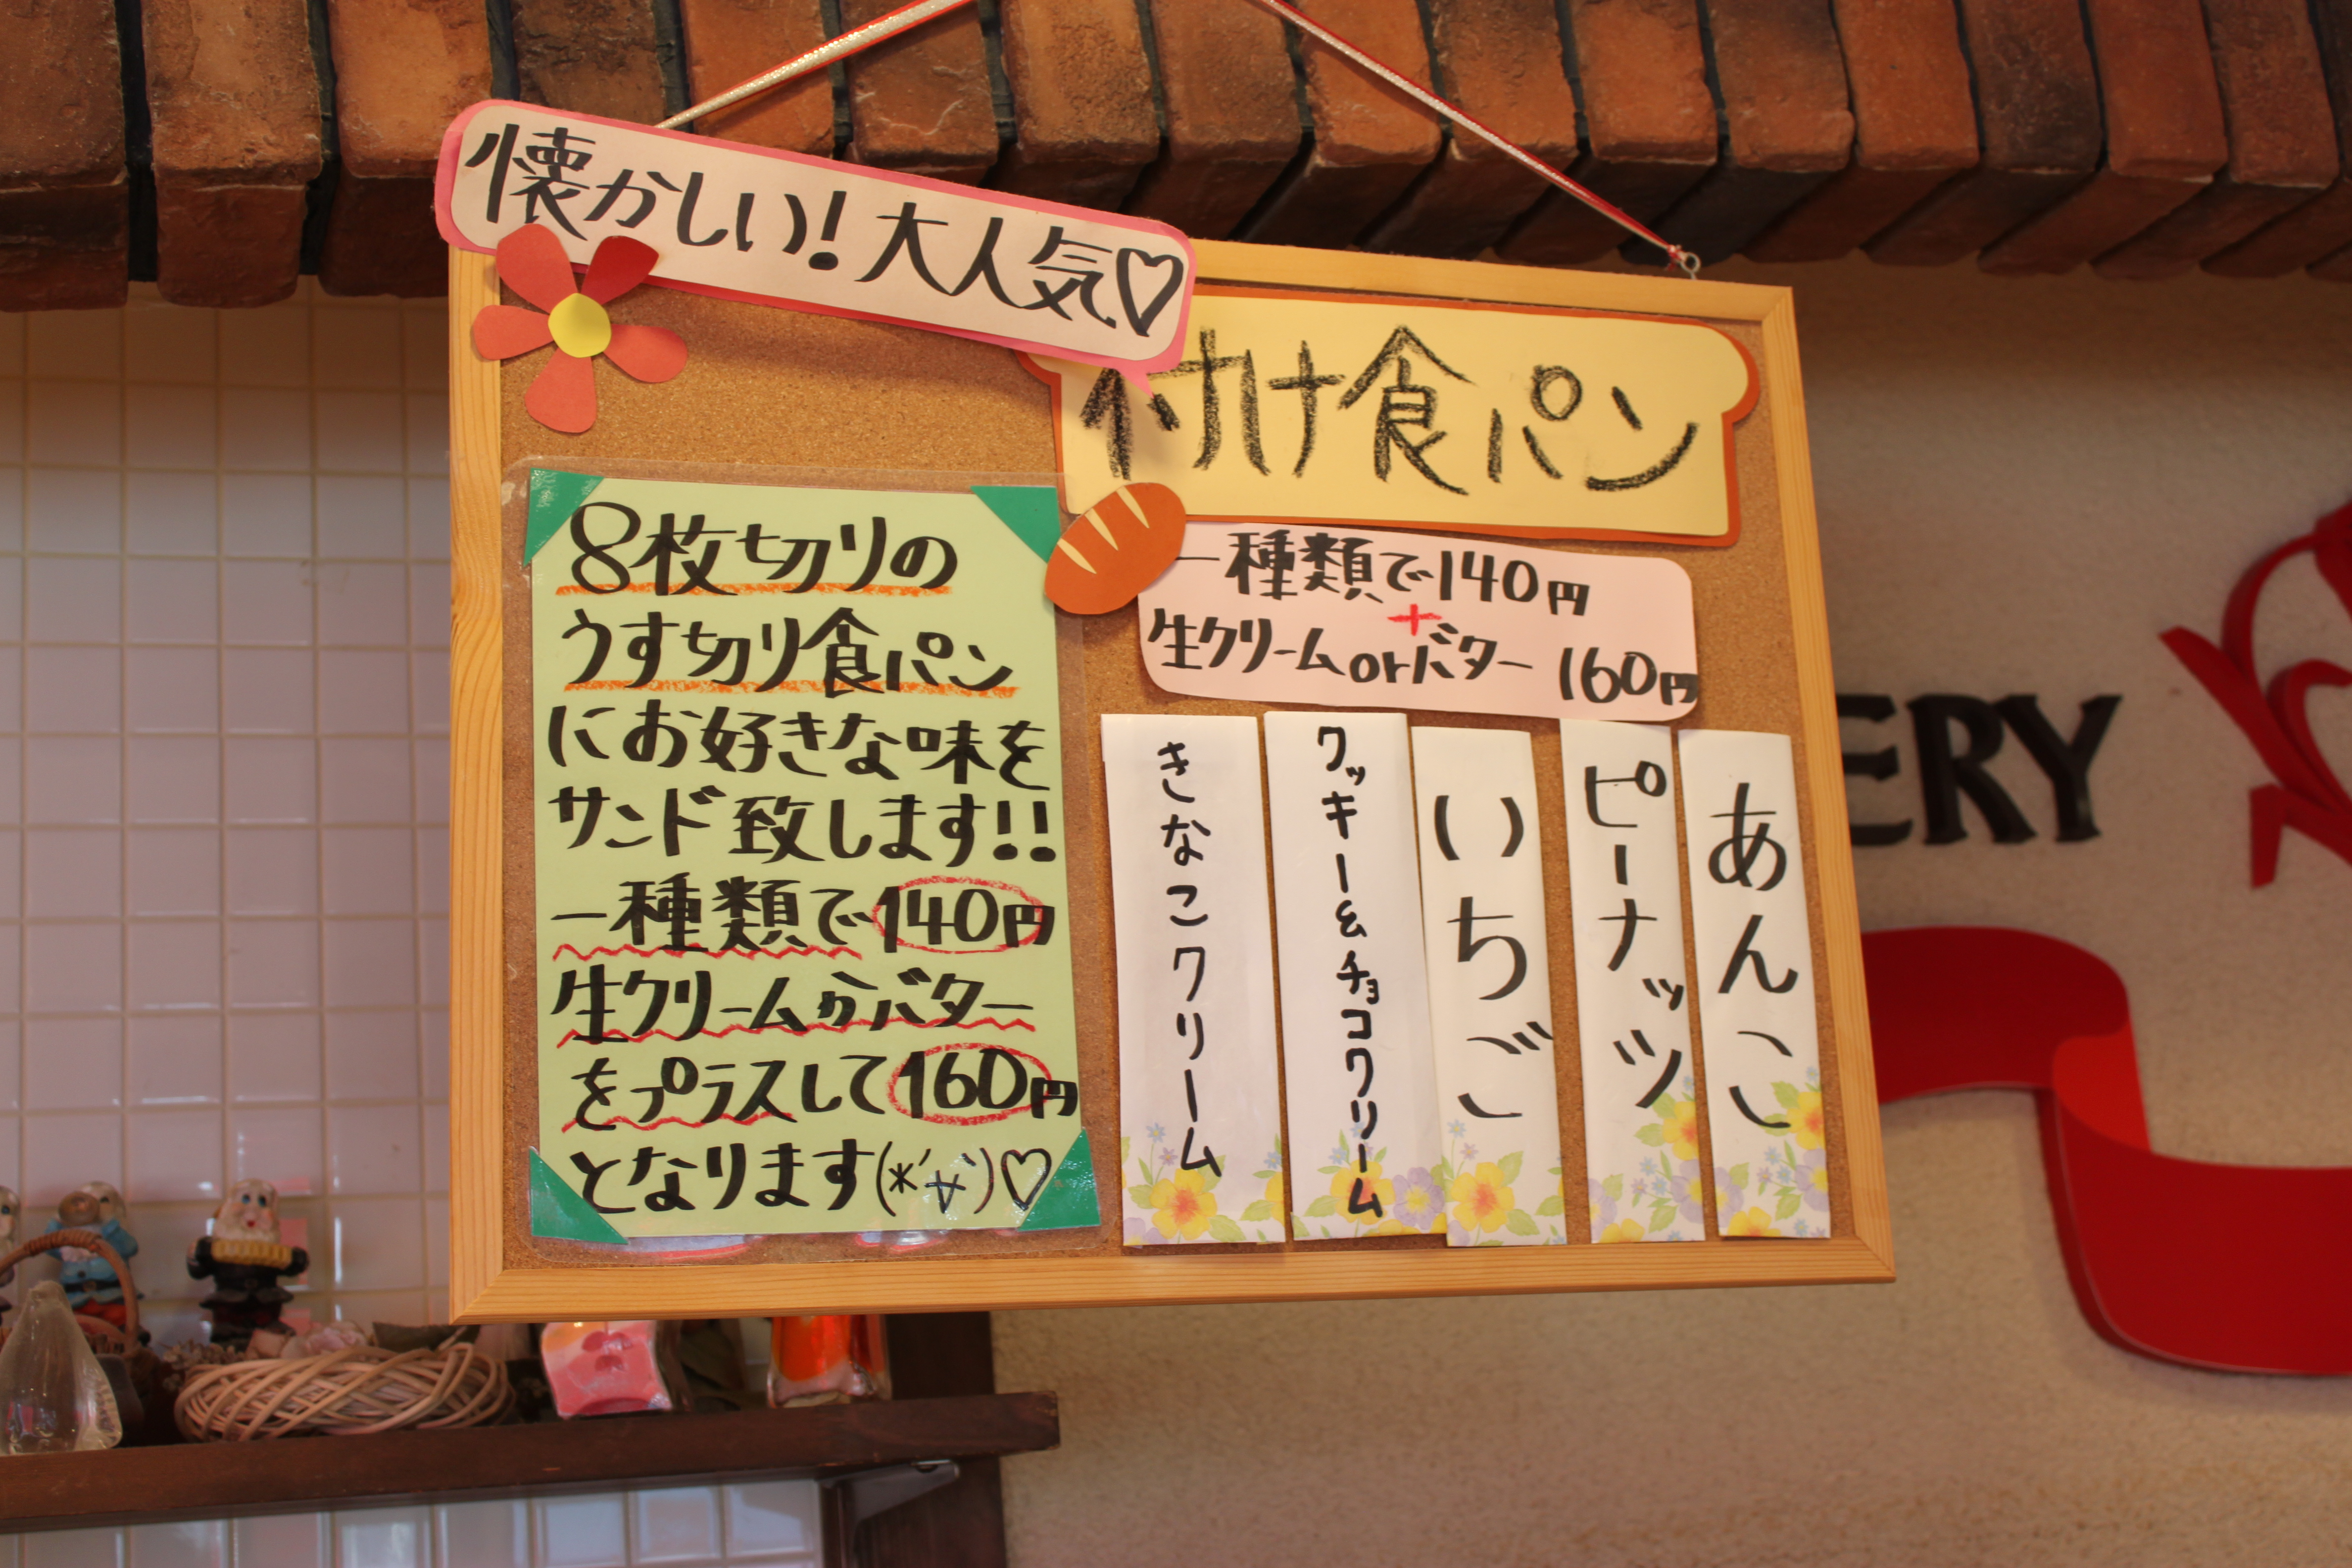 懐かしい!大人気♡
付け食パン
8枚切りの
うす切り食パン
にお好きな味を
サンド致します!!
一種類で140円
生クリームかバター
をプラスして160円
となります(*´∀`)♡
一種類で140円
+
生クリームorバター 160円
あんこ
ピーナッツ
いちご
クッキー&チョコクリーム
きなこクリーム
ERY